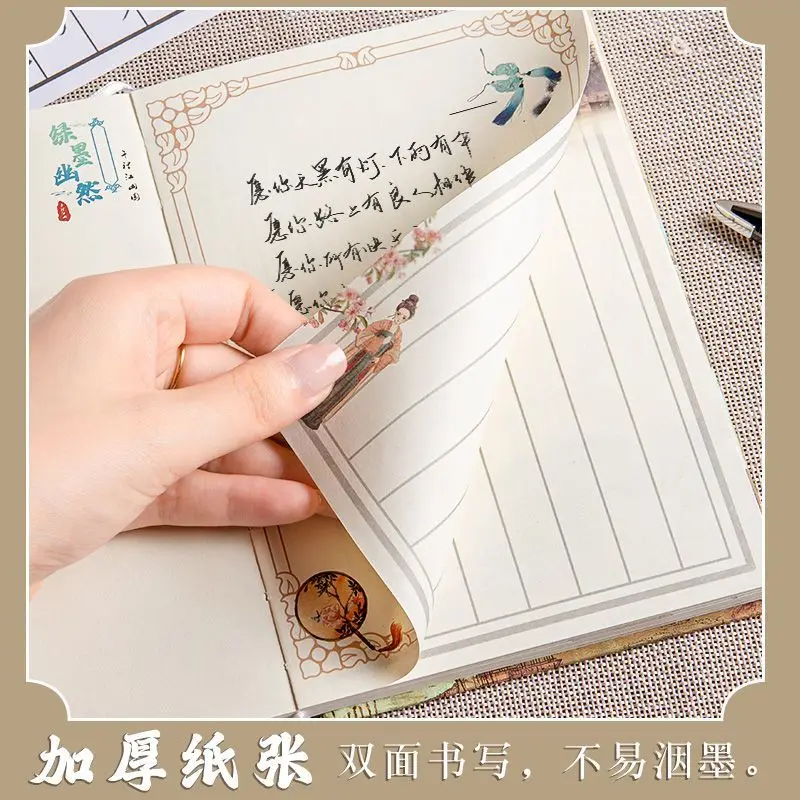 绿墨
幽然
千里江山图
愿你天黑有灯.下雨有伞
愿你路上有良人相伴
愿你所有快
愿你
加厚纸张 双面书写，不易洇墨。